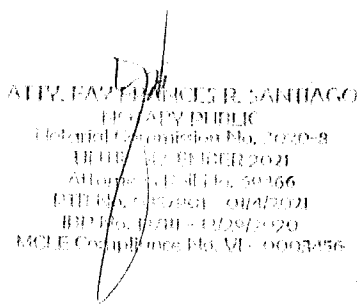 ATTY. FAY FRANCES R. SANTIAGO
NOTARY PUBLIC
Notarial Commission No. 2020-8
UNTIL DECEMBER 2021
Attorney's Roll No. 59366
PTR No. - 01/4/2021
IBP No. - 12/29/2020
MCLE Compliance No. VI - 0003456